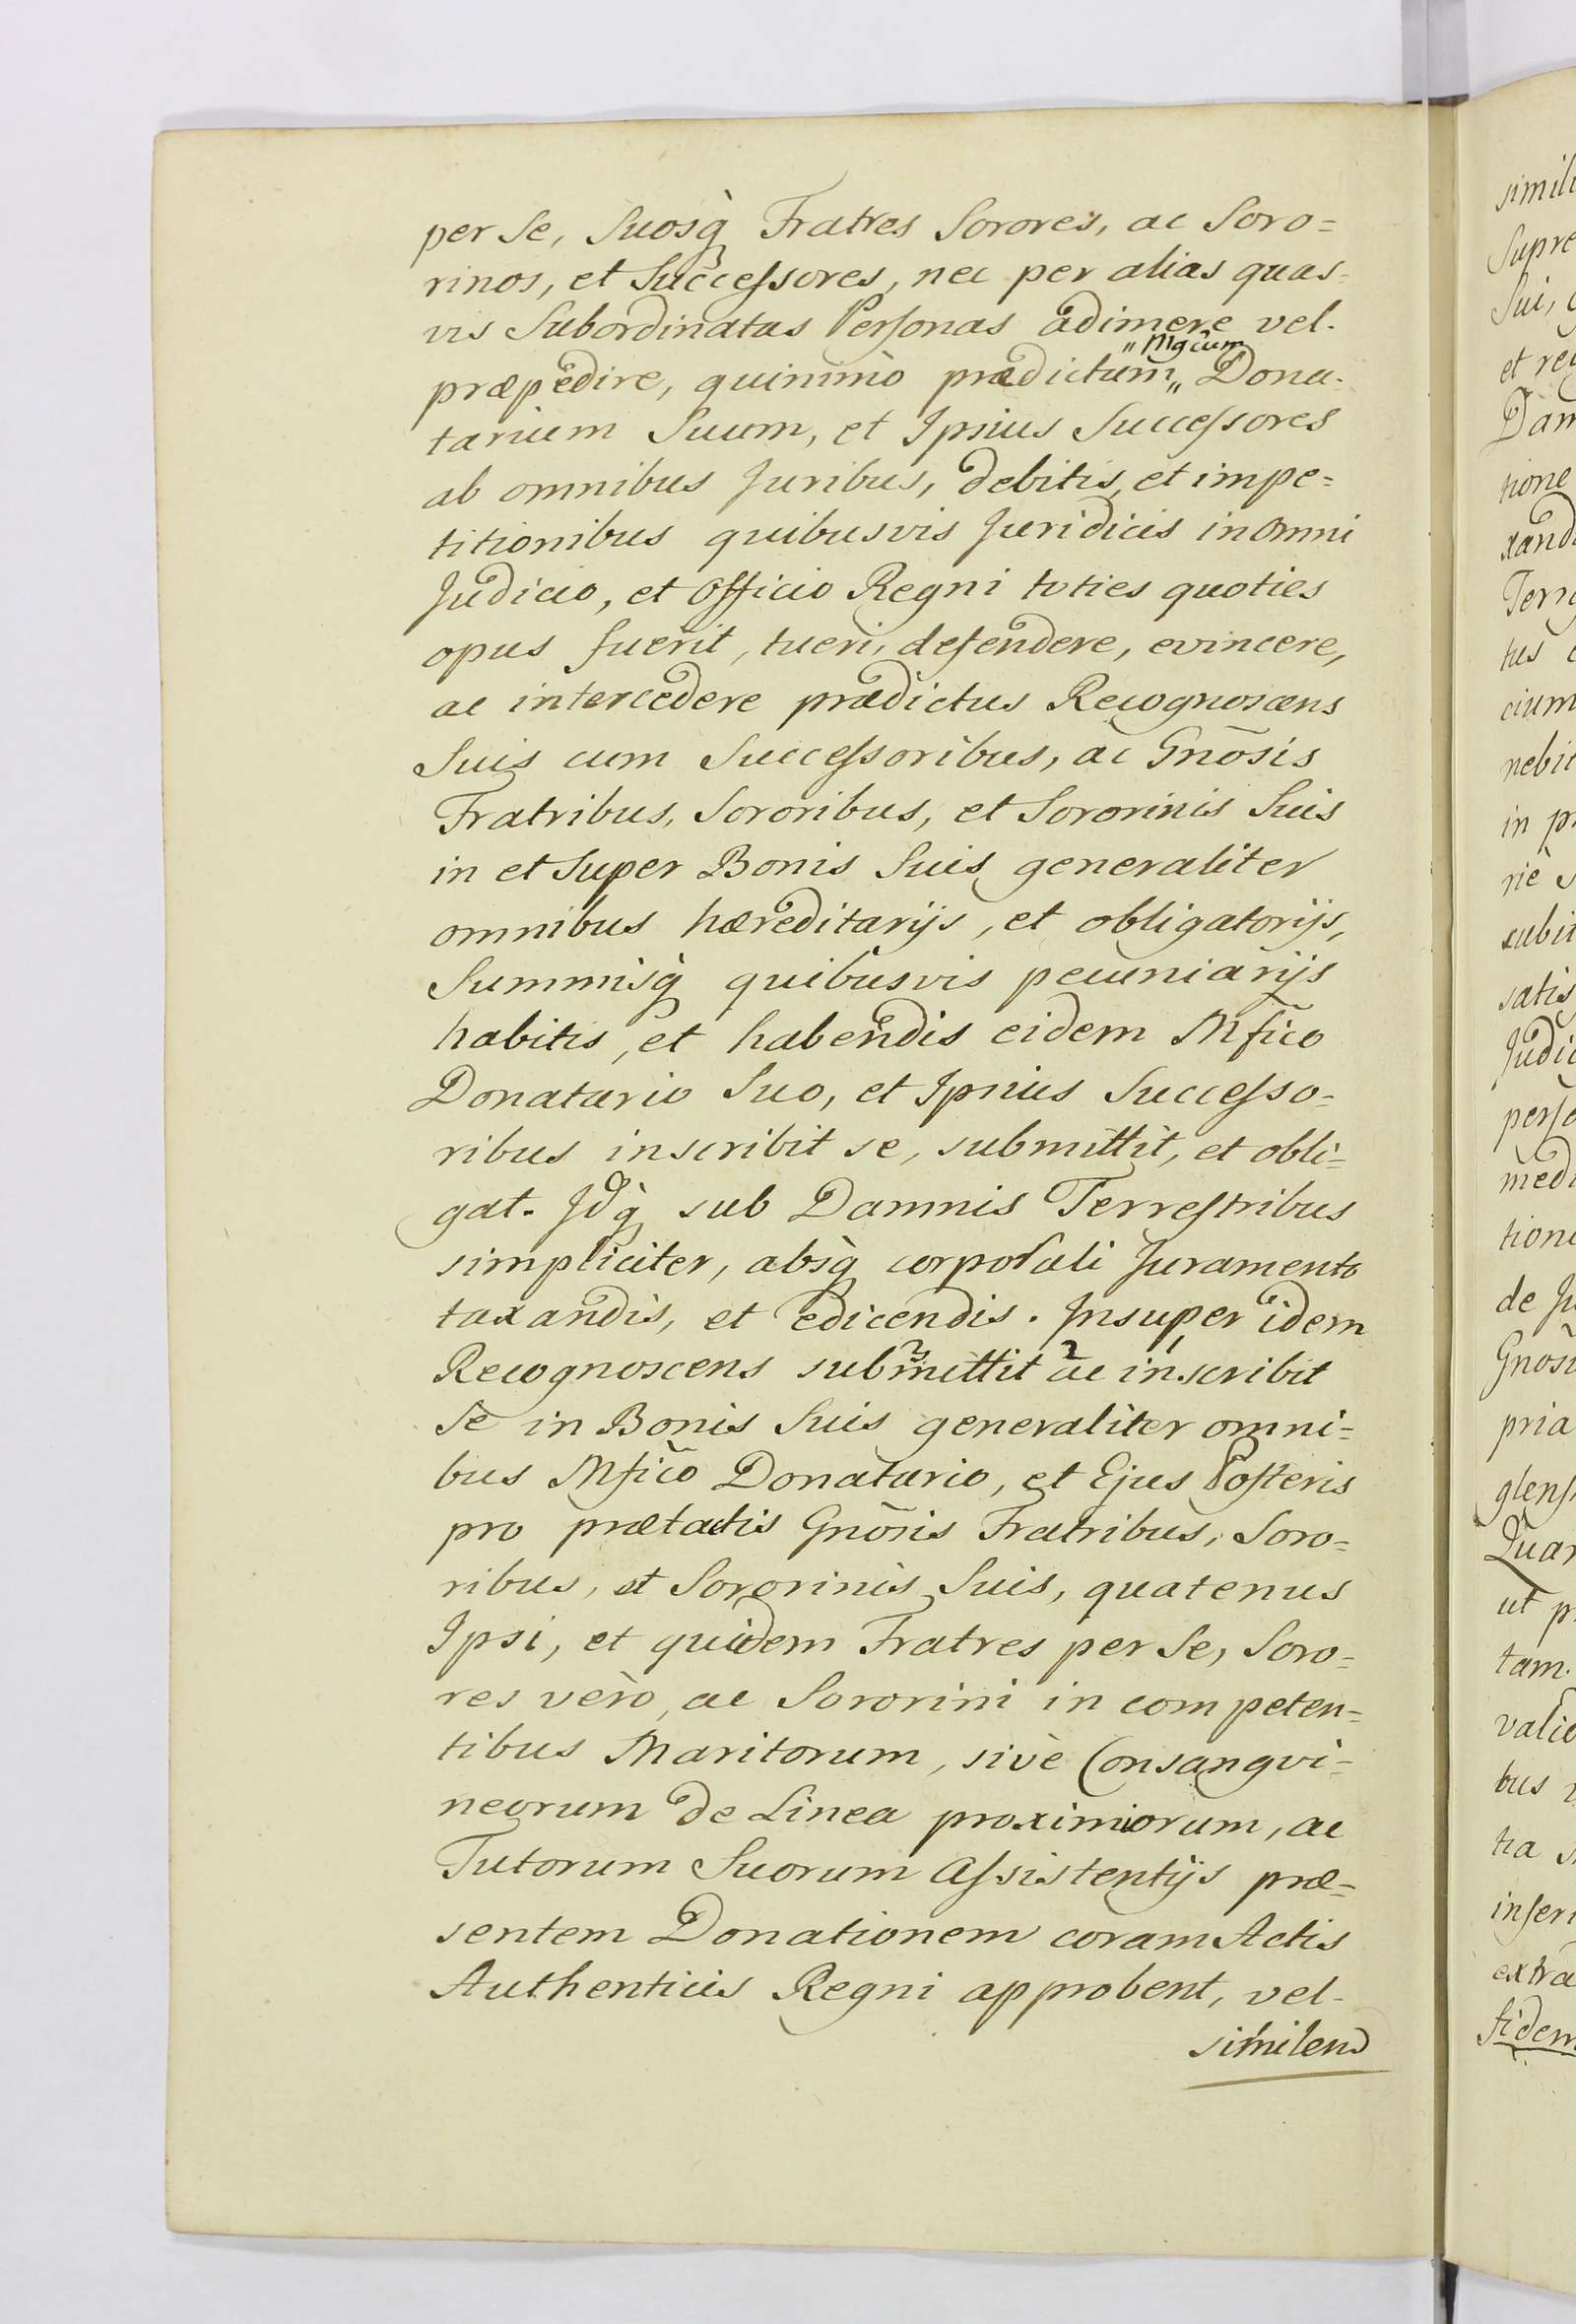 per Se, Suosq̀ Fratres Sorores, ac Soro=
rinos, et Successores, nec per alias quas-
vis Subordinatas Personas adimere vel.
præpedire, quinimò prædictum „ Mgcum „ Dona-
tarium Suum, et Ipsius Successores
ab omnibus Juribus, debitis, et impe=
titionibus quibusvis Juridicis in omni
Judicio, et Officio Regni toties quoties
opus fuerit, tueri, defendere, evincere,
ac intercedere prædictus Recognoscens
Suis cum Successoribus, ac Gnōsis
Fratribus, Sororibus, et Sororinis Suis
in et super Bonis Suis generaliter
omnibus hæreditarijs, et obligatorijs,
Summisq̀ quibusvis pecuniarijs
habitis, et habendis eidem Mfico
Donatario Suo, et Ipsius Successo=
ribus inscribit se, submittit, et obli=
gat. Idq̀ sub Damnis Terrestribus
simpliciter, absq̀ corporali Juramento
taxandis, et edicendis. Insuper idem
Recognoscens submittit ac inscribit
Se in Bonis Suis generaliter omni=
bus Mfico Donatario, et Ejus Posteris
pro prætactis Gnōsis Fratribus, Soro=
ribus, et Sororinis Suis, quatenus
Ipsi, et quidem Fratres per Se, Soro=
res verò, ac Sororini in competen=
tibus Maritorum, sivè Consangvi=
neorum de Linea proximiorum, ac
Tutorum Suorum Assistentijs præ=
sentem Donationem coram Actis
Authenticis Regni approbent, vel-
similem
simili
Supre
Sui,
et re
Dam
tione
xand
Terr
tus
cium
nebit
in p
riè
subi
satis
Judi
perso
medi
tion
de Ju
Gnosi
pria
glens
Quar
ut p
tam.
valid
bus
tia
inser
extra
fidem